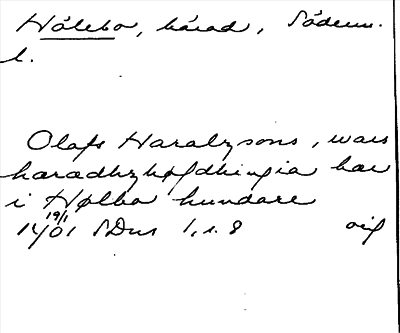 Hölebo, härad, Söderm.
l.
Olafs Haralzsons, wars
haradhzhøfdhingia hær
i Hølbo hundare
19/1
1401 SDns 1, s. 8 orig